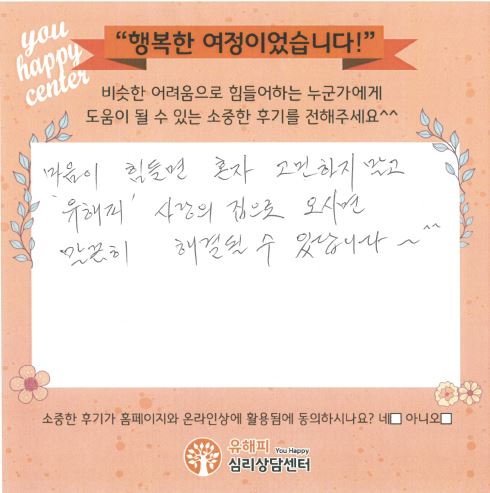 you
happy
center
“행복한 여정이었습니다!”
비슷한 어려움으로 힘들어하는 누군가에게
도움이 될 수 있는 소중한 후기를 전해주세요^^
마음이 힘들면 혼자 고민하지 말고
'유해피' 사랑의 집으로 오시면
말끔히 해결될 수 있답니다~^^
소중한 후기가 홈페이지와 온라인상에 활용됨에 동의하시나요? 네□ 아니오□
유해피 You Happy
심리상담센터